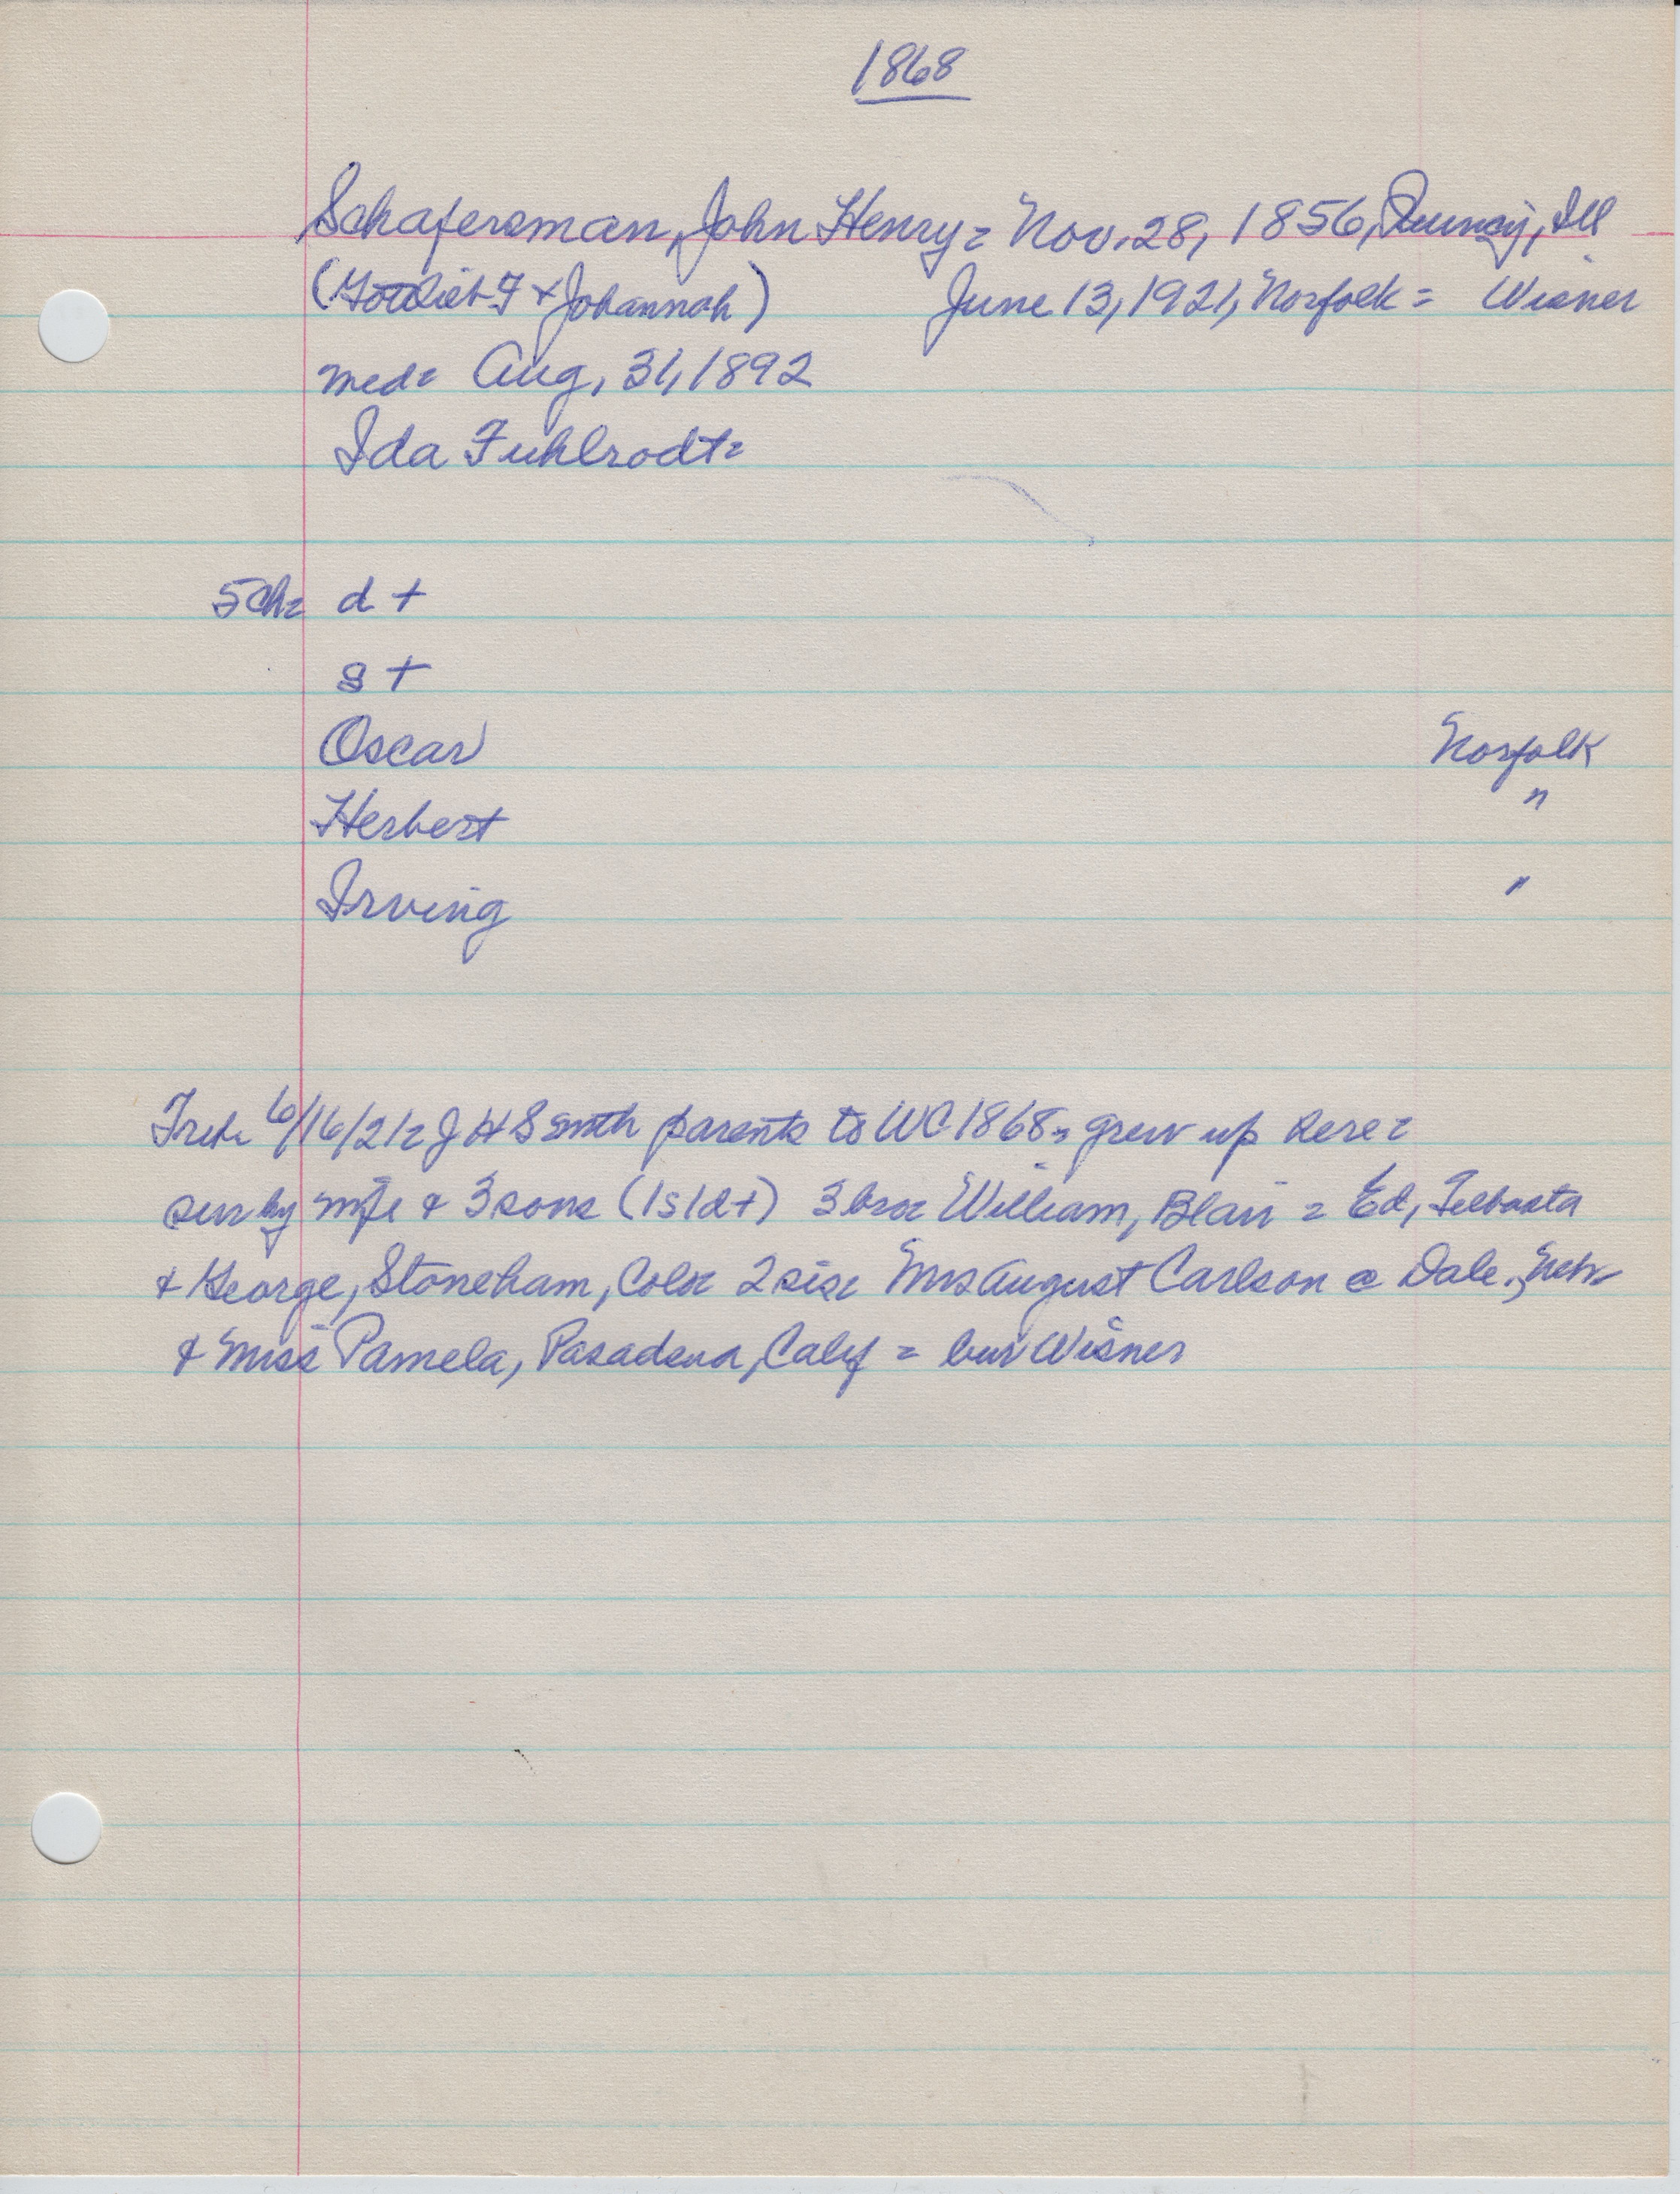 1868
Schafersman, John Henry = Nov. 28, 1856, Quincy, Ill
(Gottlieb F + Johannah) June 13, 1921, Norfolk = Wisner
med = Aug, 31, 1892
Ida Fuhlrodt =
5 Ch = d +
s +
Oscar Norfolk
Herbert "
Irving "
6/16/21 = J H S parents to WC 1868 = grew up here =
sur by wife & 3 sons (1s 1d +) 3 bro = William, Blair = Ed,
& George, Stoneham, Colo = 2 sis = Mrs August Carlson @ Dale, Neb
& Miss Pamela, Pasadena, Calif = bur Wisner